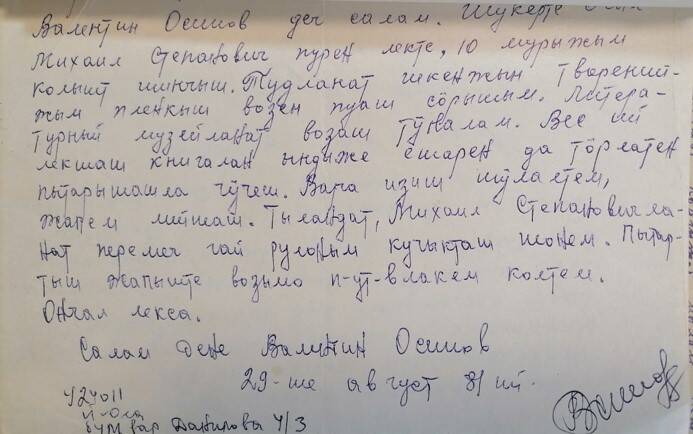 Валентин Осипов деч салам. Шукерте
Михаил Степанович пурен лекте, 10 мурыжым
колышт шинчыш. Тудланат шкенжын творений-
жым пленкыш возен пуаш сӧрышым. Литера-
турный музейланат возаш тӱҥалам. Вес ий
лекшаш книгалан ындыже ешарен да тӧрлатен
пытарышашла чӱчеш. Вара изиш шӱлалтем,
жапем лийшаш. Тыландат, Михаил Степанович-ла-
нат перемеч гай рулоным кучыкташ шонем. Пытар-
тыш жапыште возымо п-ут-влакем колтем.
Ончал лекса.
Салам дене Валентин Осипов
29-ше август 81 ий.
424011
й-Ола
Данилова 4/3